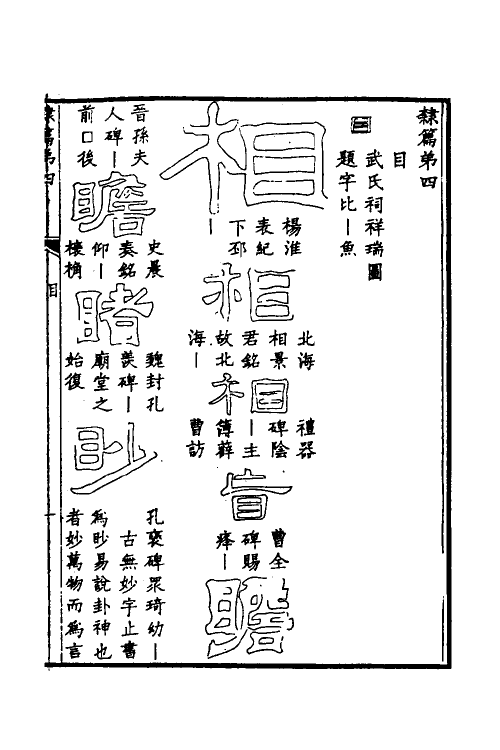 隸篇弟四
目
目
武氏祠祥瑞圖
題字比丨魚
相
楊淮
表紀
下邳
丨
相
北海
相景
君銘
故北
海丨
相
禮器
碑陰
丨主
簿薛
曹訪
盲
曹全
碑賜
丨
瞻
晉孫夫
人碑丨
前口後
瞻
史晨
奏銘
仰丨
榱桷
睹
魏封孔
羨碑丨
廟堂之
始復
眇
孔褒碑眾琦幼丨
古無妙字止書
為眇易說卦神也
者妙萬物而為言
隸篇弟四
目
一